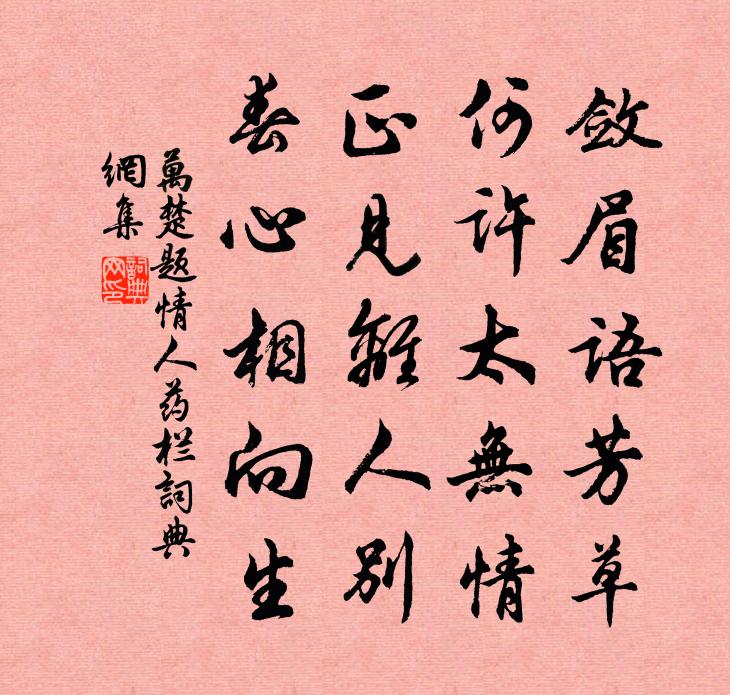 斂眉語芳草
何許太無情
正見離人別
春心相向生
萬楚題情人药栏詞典
網集
詞典
网印